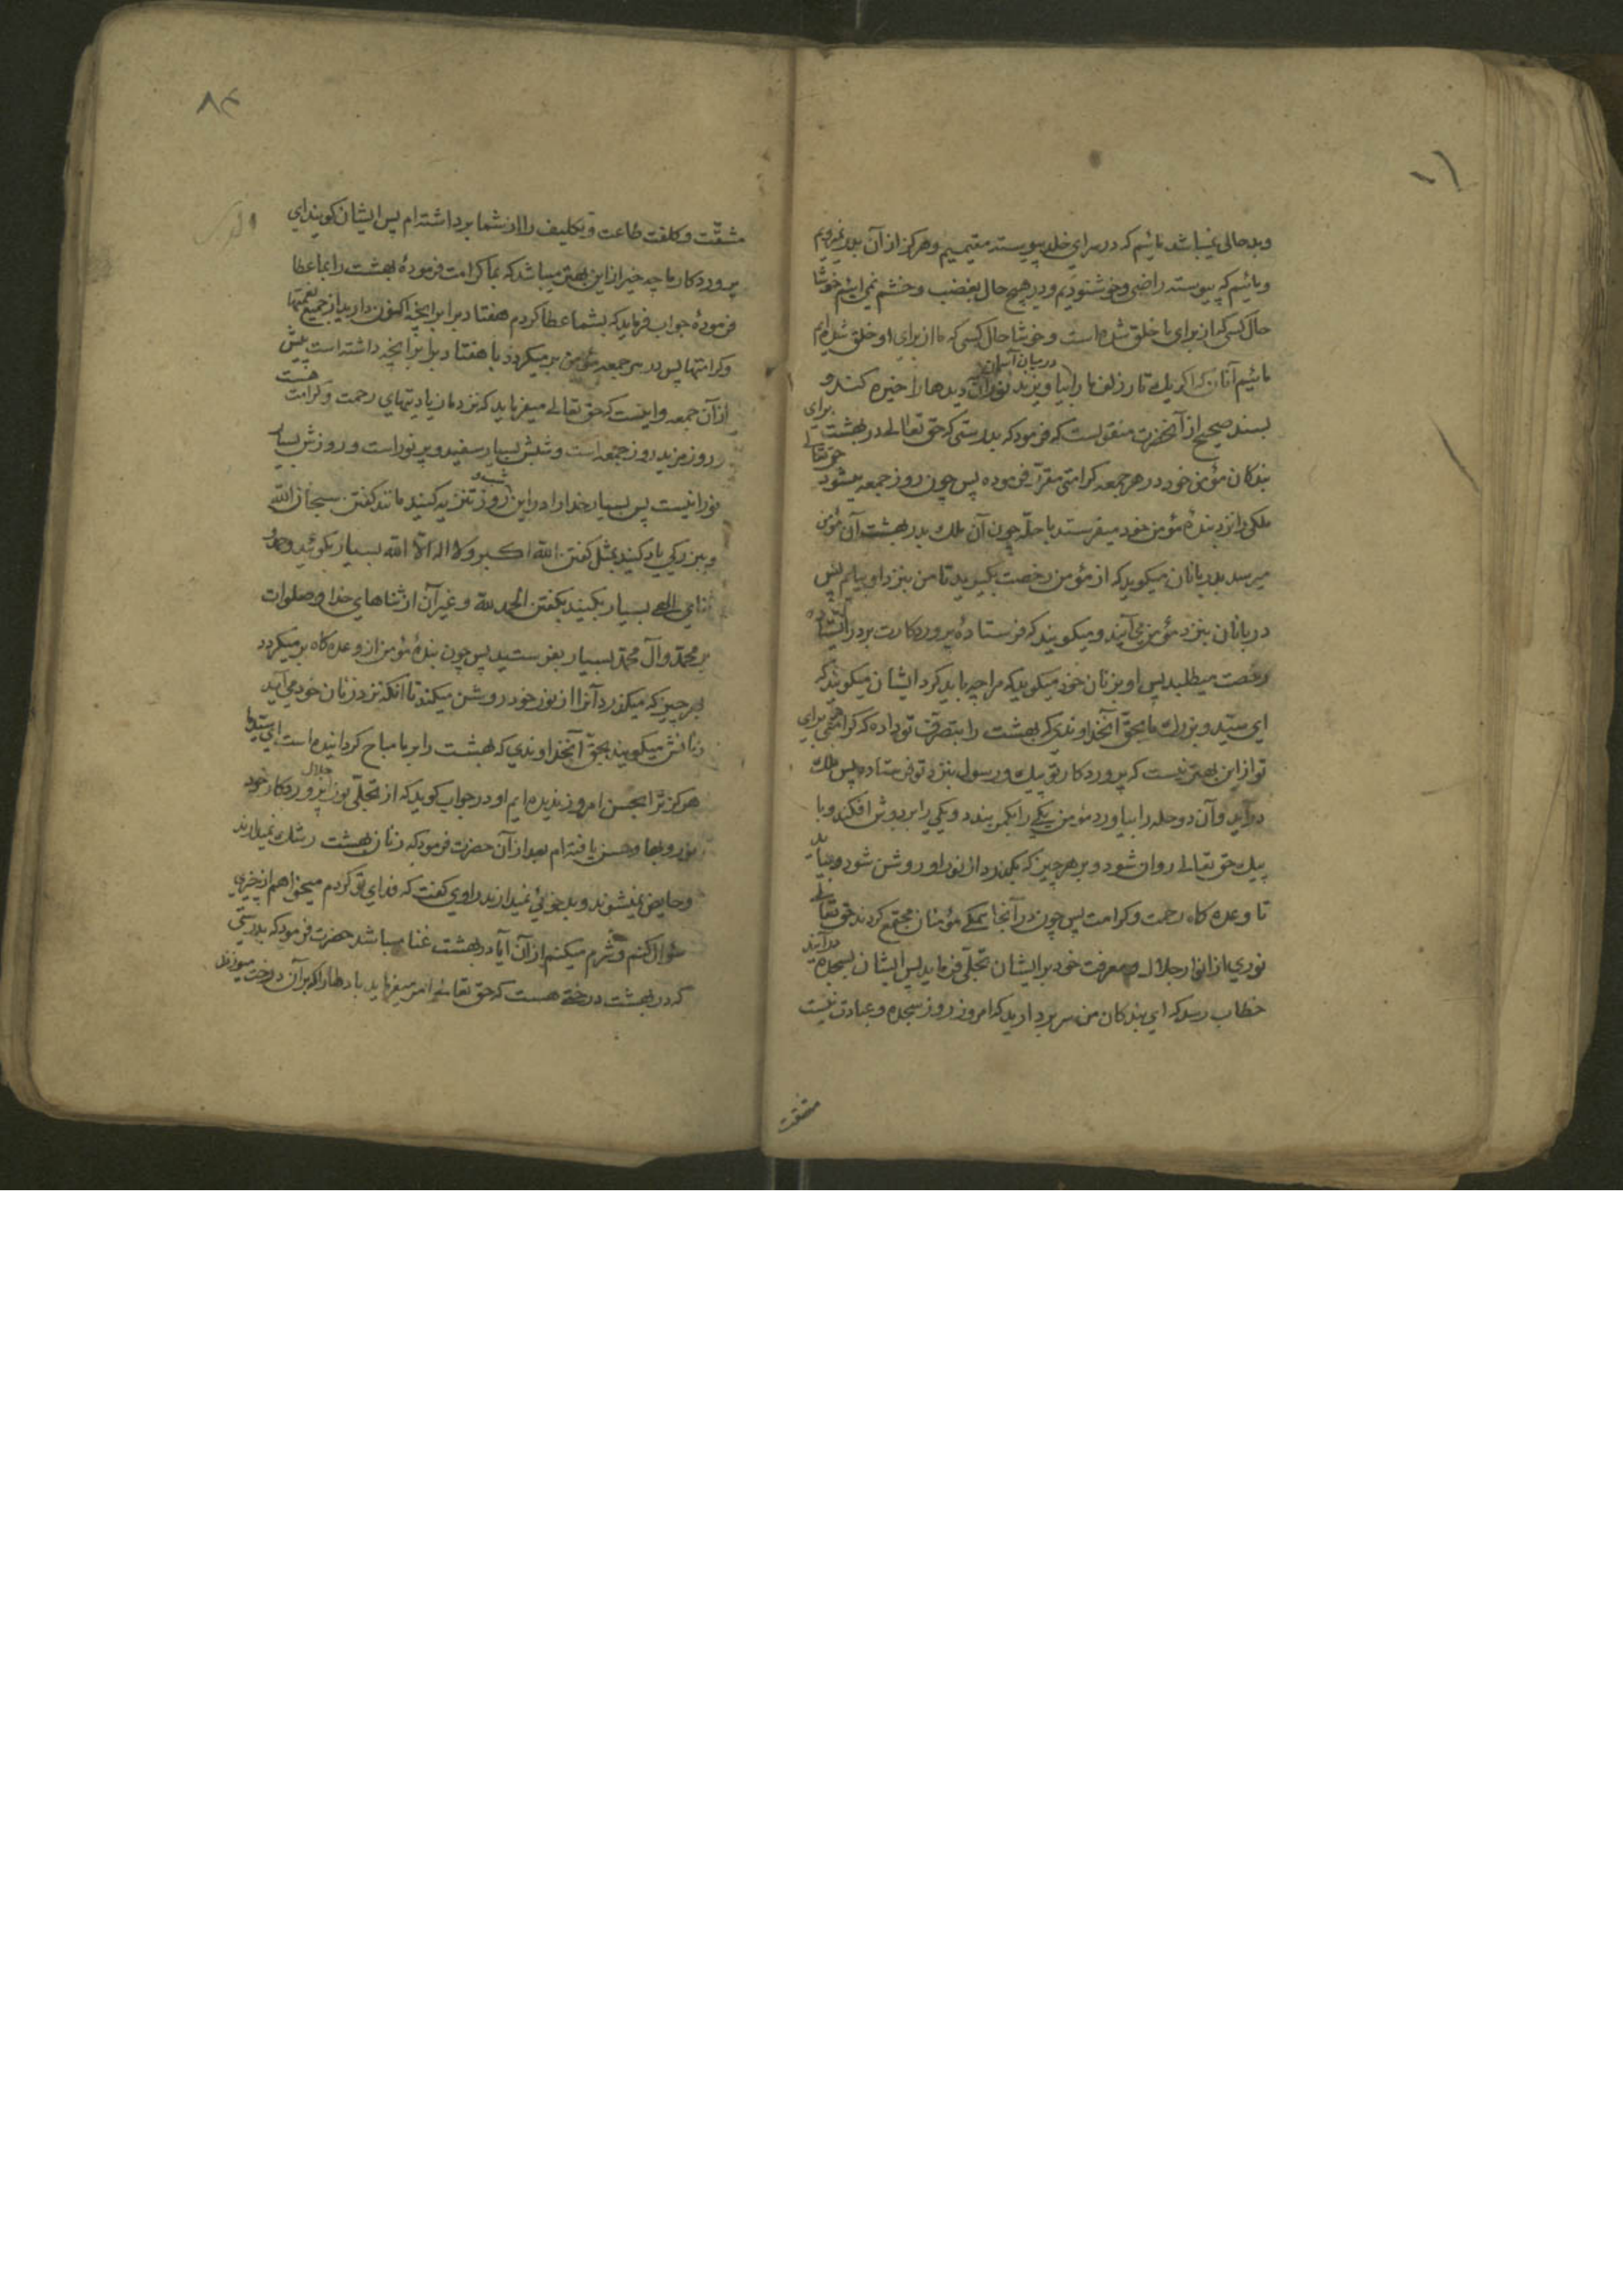 وبدحالی نمیباشد مائیم که در سرای خلد پیوسته مقیمیم وهرکز از آن بدر نمیرویم
ومائیم که پیوسته راضی وخوشنودیم ودر هیچ حال بغضب وخشم نمی آئیم خوشا
حال کسی که از برای ما خلق شده است وخوشا حال کسی که ما از برای او خلق شده ایم
مائیم آنان که اگر یک تار زلف ما را بیاویزند در میان آسمان نور آن دیدها را خیره کند و
بسند صحیح از آنحضرت منقولست که فرمود که بدرستی که حق تعالی در بهشت برای
بندکان مؤمن خود در هر جمعه کرامتی مقرر فرموده پس چون روز جمعه میشود حق تعالی
ملکی را نزد بندهٔ مؤمن خود میفرستد با حلّه چون آن ملک بدر بهشت آن مؤمن
میرسد بدربانان میکوید که از مؤمن رخصت بگیرید تا من بنزد او بیایم پس
دربانان بنزد مؤمن می آیند ومیکویند که فرستادهٔ پروردکارت بر در ایستاده
رخصت میطلبد پس او بزنان خود میکوید که مرا چه باید کرد ایشان میکویند که
ای سیّد وبزرگ ما بحقّ آنخداوندی که بهشت را بتصرف تو داده که کرامتی برای
تو از این بهتر نیست که پروردکار تو پیک ورسول بنزد تو فرستاده پس ملک
درآید وآن دو حله را بیاورد مؤمن یکی را بکمر بندد ویکی را بر دوش افکند وبا
پیک حق تعالی روان شود وبر هر چیز که بگذرد از نور او روشن شود وبیاید
تا وعده کاه رحمت وکرامت پس چون در آنجا همکی مؤمنان مجتمع کردند حق تعالی
نوری از انوار جلال ومعرفت خود بر ایشان تجلّی فرماید پس ایشان بسجده درآیند
خطاب رسد که ای بندکان من سر بردارید که امروز روز سجده وعبادت نیست
مشقت
مشقّت وکلفت طاعت وتکلیف را از شما برداشته ام پس ایشان کویند ای
پروردکار ما چه خیر از این بهتر میباشد که بما کرامت فرمودهٔ بهشت را بما عطا
فرمودهٔ جواب فرماید که بشما عطا کردم هفتاد برابر آنچه اکنون دارید از جمیع نعمتها
وکرامتها پس در هر جمعه مؤمن برمیکردد با هفتاد برابر آنچه داشته است پیش
از آن جمعه واینست که حق تعالی میفرماید که نزد ما زیادتیهای رحمت وکرامت هست
روز مزید روز جمعه است وشبش بسیار سفید وپر نور است وروزش بسیار
نورانیست پس بسیار خدا را در این شب و روز تنزیه کنید مانند کفتن سبحان الله
وببزرکی یاد کنید مثل کفتن الله اکبر ولا اله الّا الله بسیار بکوئید وحمد
ثنای الهی بسیار بکنید بکفتن الحمد لله وغیر آن از ثناهای خدا وصلوات
بر محمّد وآل محمّد بسیار بفرستید پس چون بندهٔ مؤمن از وعده کاه برمیکردد
بهر چیز که میکذرد آنرا از نور خود روشن میکند تا آنکه نزد زنان خود می آید
زنانش میکویند بحقّ آنخداوندی که بهشت را بر ما مباح کردانیده است ای سیّد ما
هرکز ترا بحسن امروز ندیده ایم او در جواب کوید که از تجلّی نور جلال پروردکار خود
نور وبها وحسن یافته ام بعد از آن حضرت فرمود که زنان بهشت رشک نمیبرند
وحایض نمیشوند وبدخوئی نمیدارند راوی کفت که فدای تو کردم میخواهم از چیزی
سؤال کنم وشرم میکنم از آن آیا در بهشت غنا میباشد حضرت فرمود که بدرستی
که در بهشت درختی هست که حق تعالی امر میفرماید بادها را که بر آن درخت میوزند